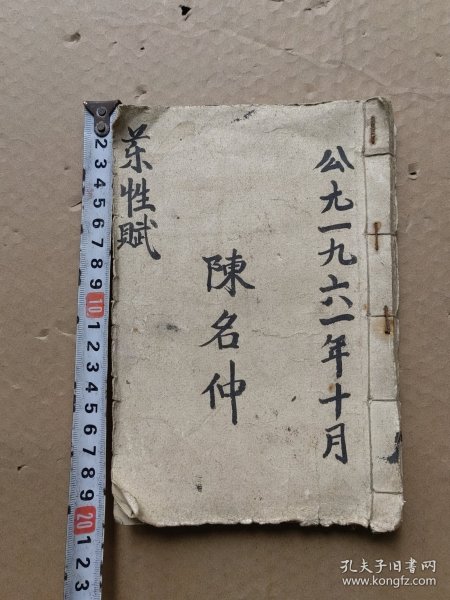 公元一九六一年十月
陳名仲
药性賦
2 3 4 5 6 7 8 9 10 1 2 3 4 5 6 7 8 9 20 1 2 3
孔夫子旧书网
www.kongfz.com